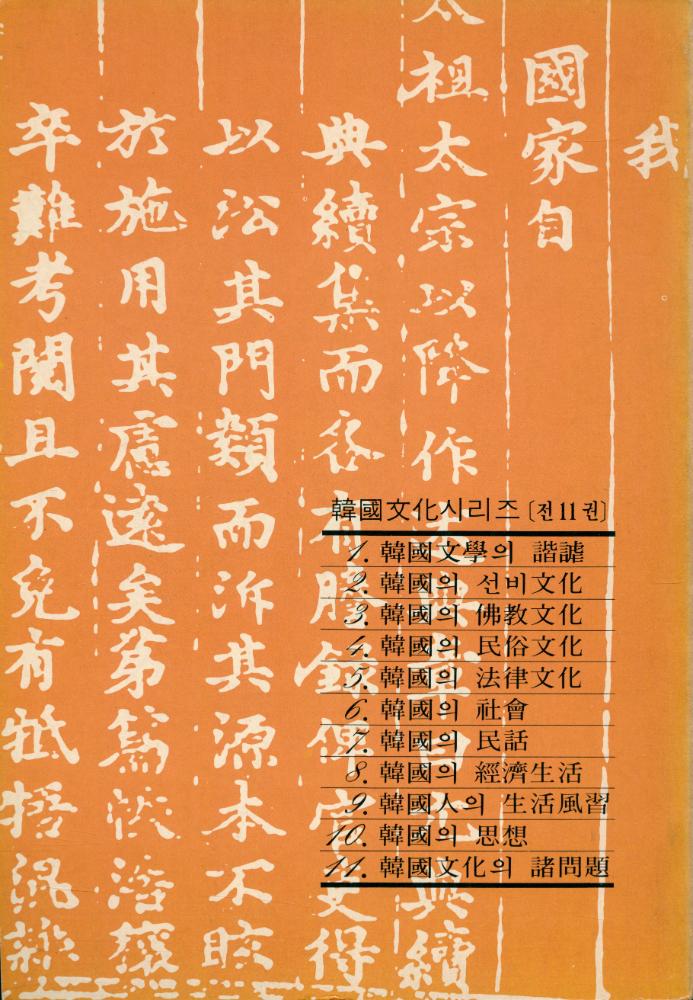 我
國家自
太祖太宗以降作典續
典續集而後有謄錄俾官吏得
以沿其門類而泝其源本不眩
於施用其慮遠矣第篇帙浩穰
卒難考閱且不免有牴牾混雜
韓國文化시리즈 [전 11 권]
1. 韓國文學의 諧謔
2. 韓國의 선비文化
3. 韓國의 佛教文化
4. 韓國의 民俗文化
5. 韓國의 法律文化
6. 韓國의 社會
7. 韓國의 民話
8. 韓國의 經濟生活
9. 韓國人의 生活風習
10. 韓國의 思想
11. 韓國文化의 諸問題